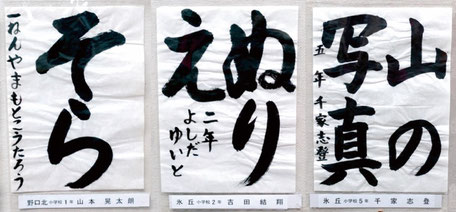 そら
一ねんやまもとこうたろう
野口北小学校1年 山本 晃太朗
ぬり
え
二年
よしだ
ゆいと
氷丘小学校2年 吉田 結翔
山の
写真
五年 千家志登
氷丘小学校5年 千家 志登